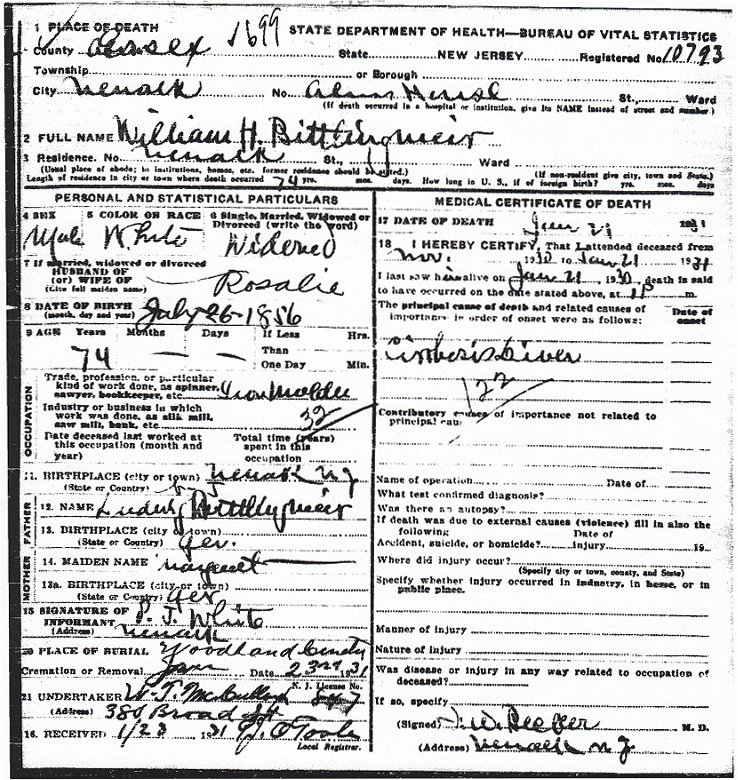 1 PLACE OF DEATH 1699 STATE DEPARTMENT OF HEALTH—BUREAU OF VITAL STATISTICS
County Essex State NEW JERSEY Registered No. 10793
Township or Borough
City Newark No. Alms House St., Ward
(If death occurred in a hospital or institution, give its NAME instead of street and number.)
2 FULL NAME William H. Bittlingmeir
3 Residence. No. Newark St., Ward
(Usual place of abode; in institutions, homes, etc. former residence should be stated.) (If non-resident give city, town and State.)
Length of residence in city or town where death occurred 74 yrs. mos. days. How long in U. S., if of foreign birth? yrs. mos. days
PERSONAL AND STATISTICAL PARTICULARS
4 SEX 5 COLOR OR RACE 6 Single, Married, Widowed or
Divorced (write the word)
Male White Widowed
7 If married, widowed or divorced
HUSBAND OF
(or) WIFE OF Rosalie
(Give full maiden name)
8 DATE OF BIRTH July 26-1856
(month, day and year)
9 AGE Years Months Days If Less Hrs.
74 — — Than
One Day Min.
OCCUPATION
Trade, profession, or particular
kind of work done, as spinner,
sawyer, bookkeeper, etc. Iron Molder
Industry or business in which
work was done, as silk mill,
saw mill, bank, etc. 32
Date deceased last worked at Total time (years)
this occupation (month and spent in this
year) occupation
11. BIRTHPLACE (city or town) Newark N.J.
(State or Country)
FATHER
12. NAME Ludwig Bittlingmeir
13. BIRTHPLACE (city or town)
(State or Country) Ger.
MOTHER
14. MAIDEN NAME Margaret
13a. BIRTHPLACE (city or town)
(State or Country) Ger
15 SIGNATURE OF P. J. White
INFORMANT
(Address) Newark
20 PLACE OF BURIAL Woodland
Cremation or Removal Date 23rd 1931
21 UNDERTAKER W. T. N. J. License No.
(Address) 386 Broad St
16. RECEIVED 1/23 1931 J. O'Toole
Local Registrar.
MEDICAL CERTIFICATE OF DEATH
17 DATE OF DEATH Jan 21 1931
18 I HEREBY CERTIFY, That I attended deceased from
Nov. 1930 to Jan 21 1931
I last saw him alive on Jan 21, 1930, death is said
to have occurred on the date stated above, at 11 P m.
The principal cause of death and related causes of Date of
importance in order of onset were as follows: onset
Cirrhosis Liver
122
Contributory causes of importance not related to
principal cause
Name of operation Date of
What test confirmed diagnosis?
Was there an autopsy?
If death was due to external causes (violence) fill in also the
following Date of
Accident, suicide, or homicide? Injury 19
Where did injury occur?
(Specify city or town, county, and State)
Specify whether injury occurred in industry, in home, or in
public place.
Manner of injury
Nature of injury
Was disease or injury in any way related to occupation of
deceased?
If so, specify
(Signed) M. D.
(Address) Newark N.J.